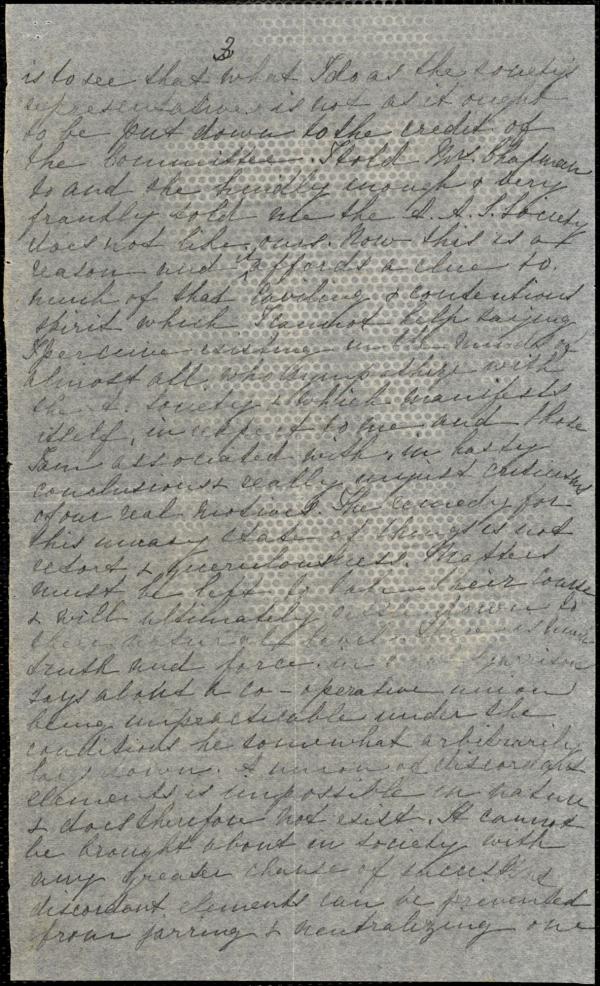 3
is to see that what I do as the Society's
representative is not as it ought
to be put down to the credit of
the Committee. I told Mrs. Chapman
so and she kindly enough & very
frankly told me the A. A. S. Society
does not like ours. Now this is a
reason and it affords a clue to
much of that caviling & contentious
spirit which I cannot help saying
I perceive existing in the minds of
almost all who sympathize with
the A. Society & which manifests
itself, in respect to me and those
I am associated with, in hasty
conclusions & really unjust criticisms
of our real motives. The remedy for
this uneasy state of things is not
retort & querulousness. Matters
must be left to take their course
& will ultimately down to
their natural level. There is much
truth and force in Garrison
says about a co-operative union
being impracticable under the
conditions he somewhat arbitrarily
lays down. A union of discordant
elements is impossible in nature
& does therefore not exist. It cannot
be brought about in society with
any greater chance of success.
discordant elements can be prevented
from jarring & neutralizing one